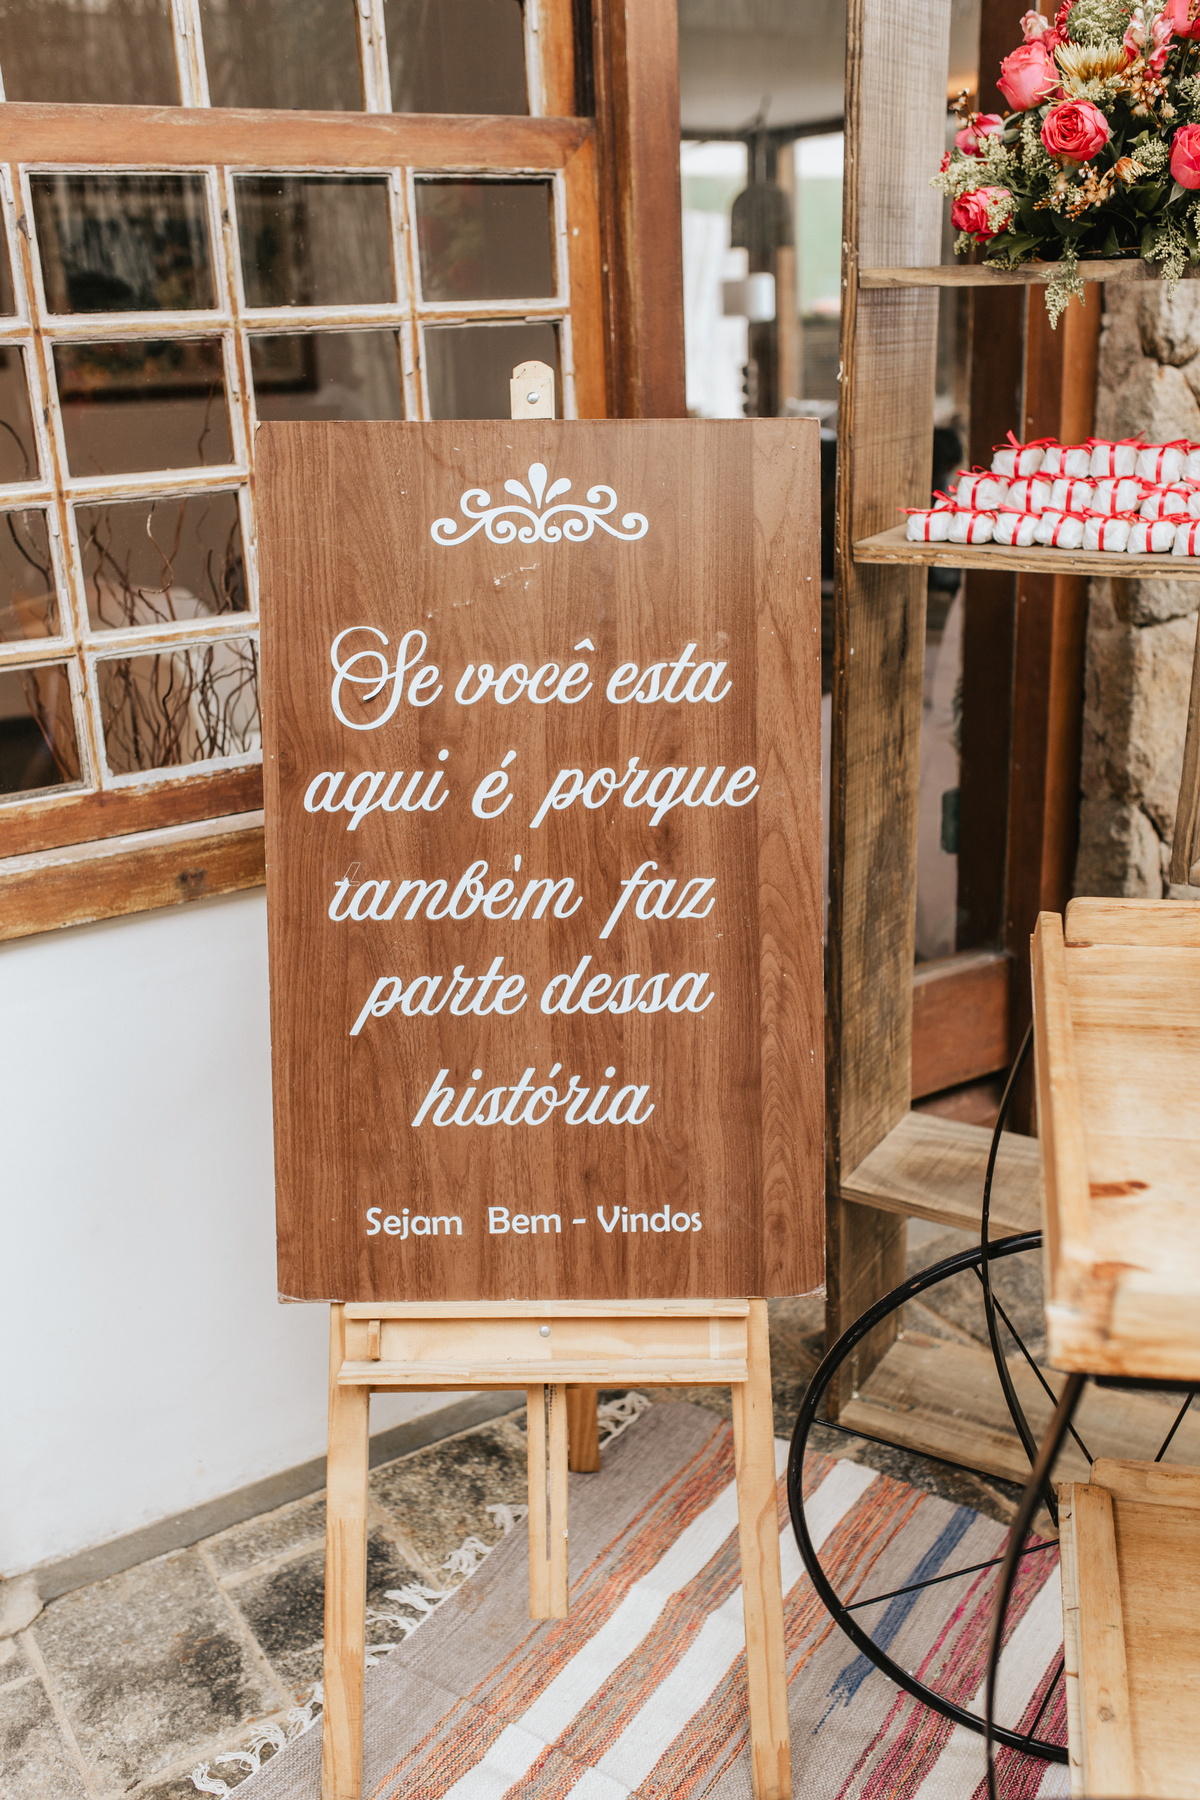 Se você esta
aqui é porque
também faz
parte dessa
história
Sejam Bem - Vindos